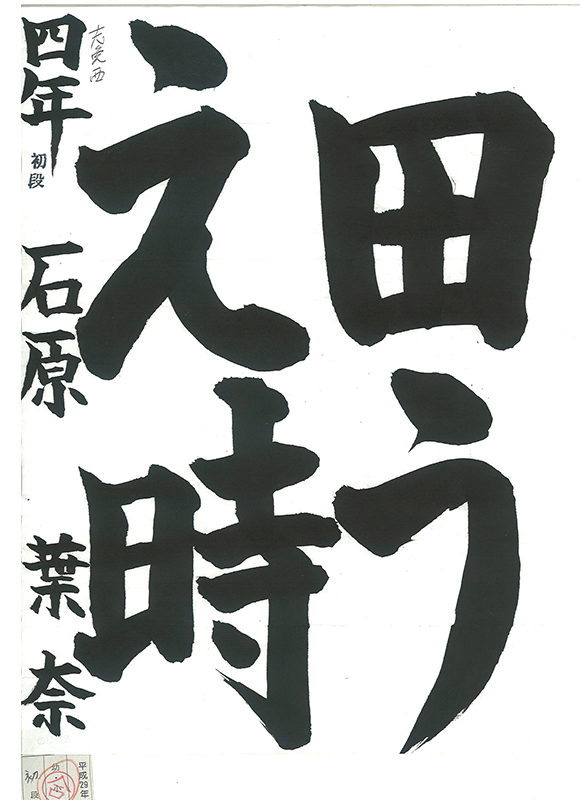 田う
え時
四年 初段 石原 葉奈
平成29年
初段